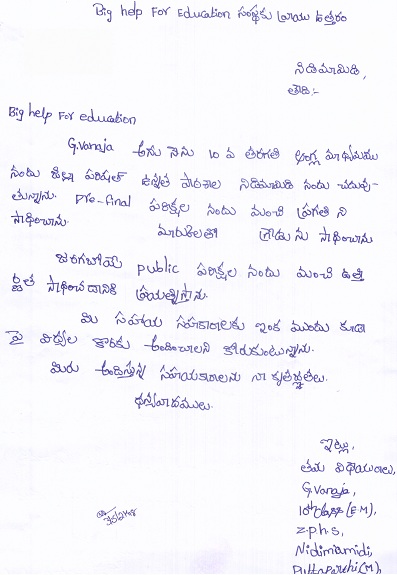 Big help For Education సంస్థకు వ్రాయు ఉత్తరం
నిడిమామిడి,
తేది:-
Big help For education
G.Vanaja అను నేను 10 వ తరగతి ఆంగ్ల మాధ్యమము
నందు జిల్లా పరిషత్ ఉన్నత పాఠశాల నిడిమామిడి నందు చదువు-
తున్నాను. Pre-final పరీక్షల నందు మంచి ప్రగతి ని
సాధించాను. మార్కులతో గ్రేడు ను సాధించాను
జరగబోయే public పరీక్షల నందు మంచి ఉత్తీ
ర్ణత సాధించడానికి ప్రయత్నిస్తాను.
మీ సహాయ సహకారాలకు ఇంక ముందు కూడా
పై విద్యల కొరకు అందించాలని కోరుకుంటున్నాను.
మీరు అందిస్తున్న సహయకారాలను నా కృతజ్ఞతలు.
ధన్యవాదములు.
ఇట్లు,
తమ విధేయురాలు,
G.Vanaja,
10th class (E.M),
Z.P.H.S,
Nidimamidi,
Puttaparthi(M),